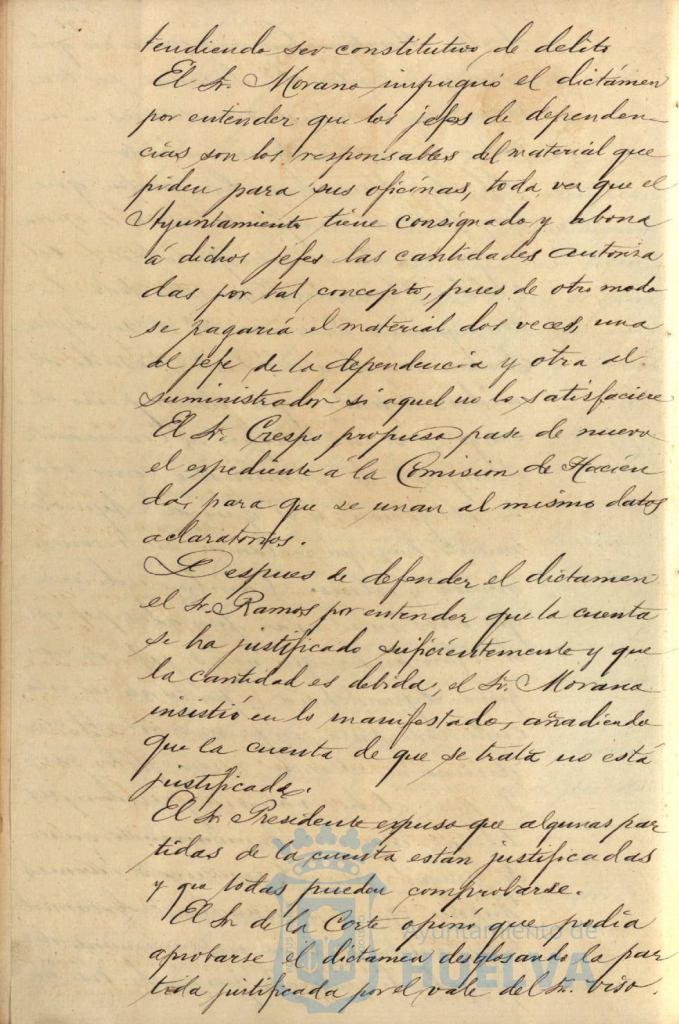 tendiendo ser constitutivo de delito
El Sr. Morano impugnó el dictámen
por entender que los jefes de dependen-
cias son los responsables del material que
piden para sus oficinas, toda vez que el
Ayuntamiento tiene consignado y abona
á dichos jefes las cantidades autoriza
das por tal concepto, pues de otro modo
se pagaría el material dos veces, una
al jefe de la dependencia y otra al
suministrador si aquel no lo satisfaciere
El Sr. Crespo propuso pase de nuevo
el expediente á la Comision de Hacien
da, para que se unan al mismo datos
aclaratorios.
Despues de defender el dictamen
el Sr. Ramos por entender que la cuenta
se ha justificado suficientemente y que
la cantidad es debida, el Sr. Morano
insistió en lo manifestado, añadiendo
que la cuenta de que se trata no está
justificada.
El Sr. Presidente expuso que algunas par
tidas de la cuenta están justificadas
y que todas pueden comprobarse.
El Sr. de la Corte opinó que podía
aprobarse el dictamen desglosando la par
tida justificada por el vale del Sr. Viso.
Ayuntamiento de
HUELVA